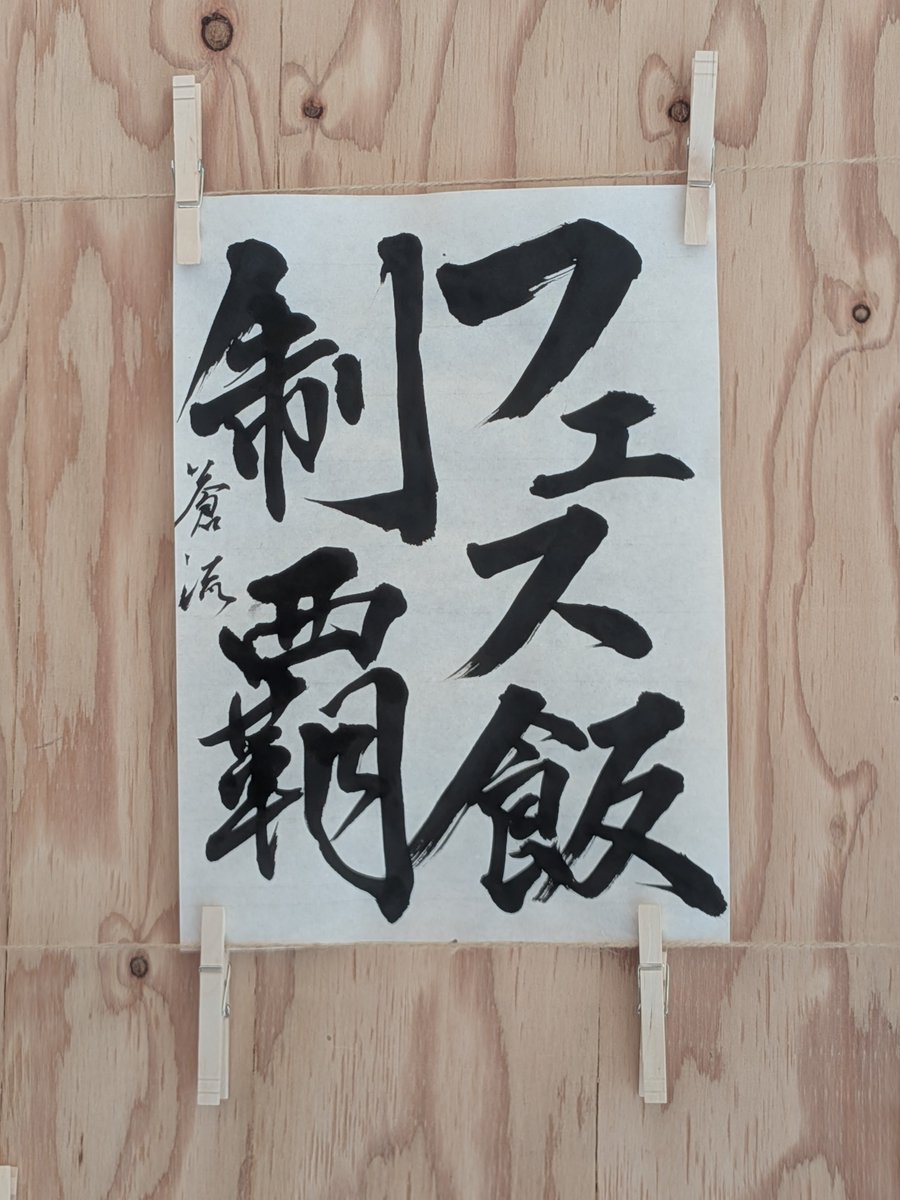 フェス飯
制覇
蒼流